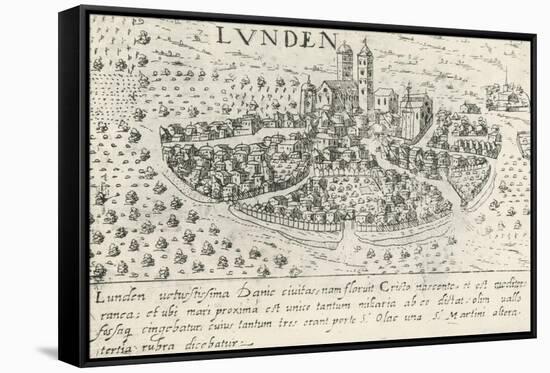 LVNDEN
Lunden vetustissima Danie civitas, nam floruit Cristo nascente, et est mediter
ranea; et ubi mari proxima est unice tantum miliaria ab eo distat, olim vallo
fossaq cingebatur, cuius tantum tres erant porte S. Olac una S. Martini altera,
tertia rubra dicebatur